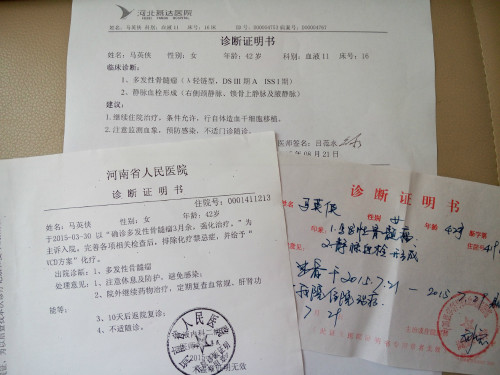 河北燕达医院
诊断证明书
姓名：马英侠 性别：女 年龄：42岁 科别：血液11 床号：16
临床诊断：
1、多发性骨髓瘤（ 轻链型，DS III期 A ISS I期）
2、静脉血栓形成（右侧颈静脉、锁骨上静脉及腋静脉）
建议：
1.继续住院治疗，条件允许，行自体造血干细胞移植。
2.注意监测血象，预防感染，不适门诊随诊。
河南省人民医院
诊断证明书
住院号：0001411213
姓名：马英侠 性别：女 年龄：42岁
于2015-03-30 以“确诊多发性骨髓瘤3月余，强化治疗。”为
主诉入院。完善各项相关检查后，排除化疗禁忌症，并给予“
VCD方案”化疗。
出院诊断：1、多发性骨髓瘤
处理意见：1、注意休息及防护，避免感染；
2、院外继续药物治疗，定期复查血常规、肝肾功
能等；
3、10天后返院复诊；
4、不适随诊。
诊断证明书
姓名 马英侠 性别 女 年龄 42岁
印象：1.多发性骨髓瘤
2.静脉血栓形成
患者于2015.7.21－2015
我院住院治疗